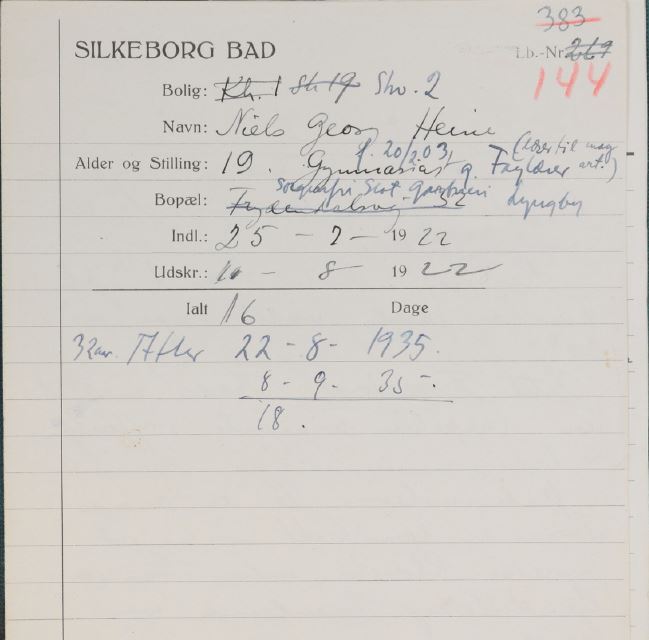 383
SILKEBORG BAD Lb.-Nr. 269
144
Bolig: Kh. 1 St 19 Stv. 2
Navn: Niels Georg Heine
f. 20/2 03, (lærer til mag art.)
Alder og Stilling: 19. Gymnasiast g. Faglærer
Sorgenfri Slot Gartneri Lyngby
Bopæl: Frydendalsvej 32
Indl.: 25 - 7 - 1922
Udskr.: 10 - 8 1922
Ialt 16 Dage
32 aar. Atter 22 - 8 - 1935.
8 - 9 - 35 -.
18.